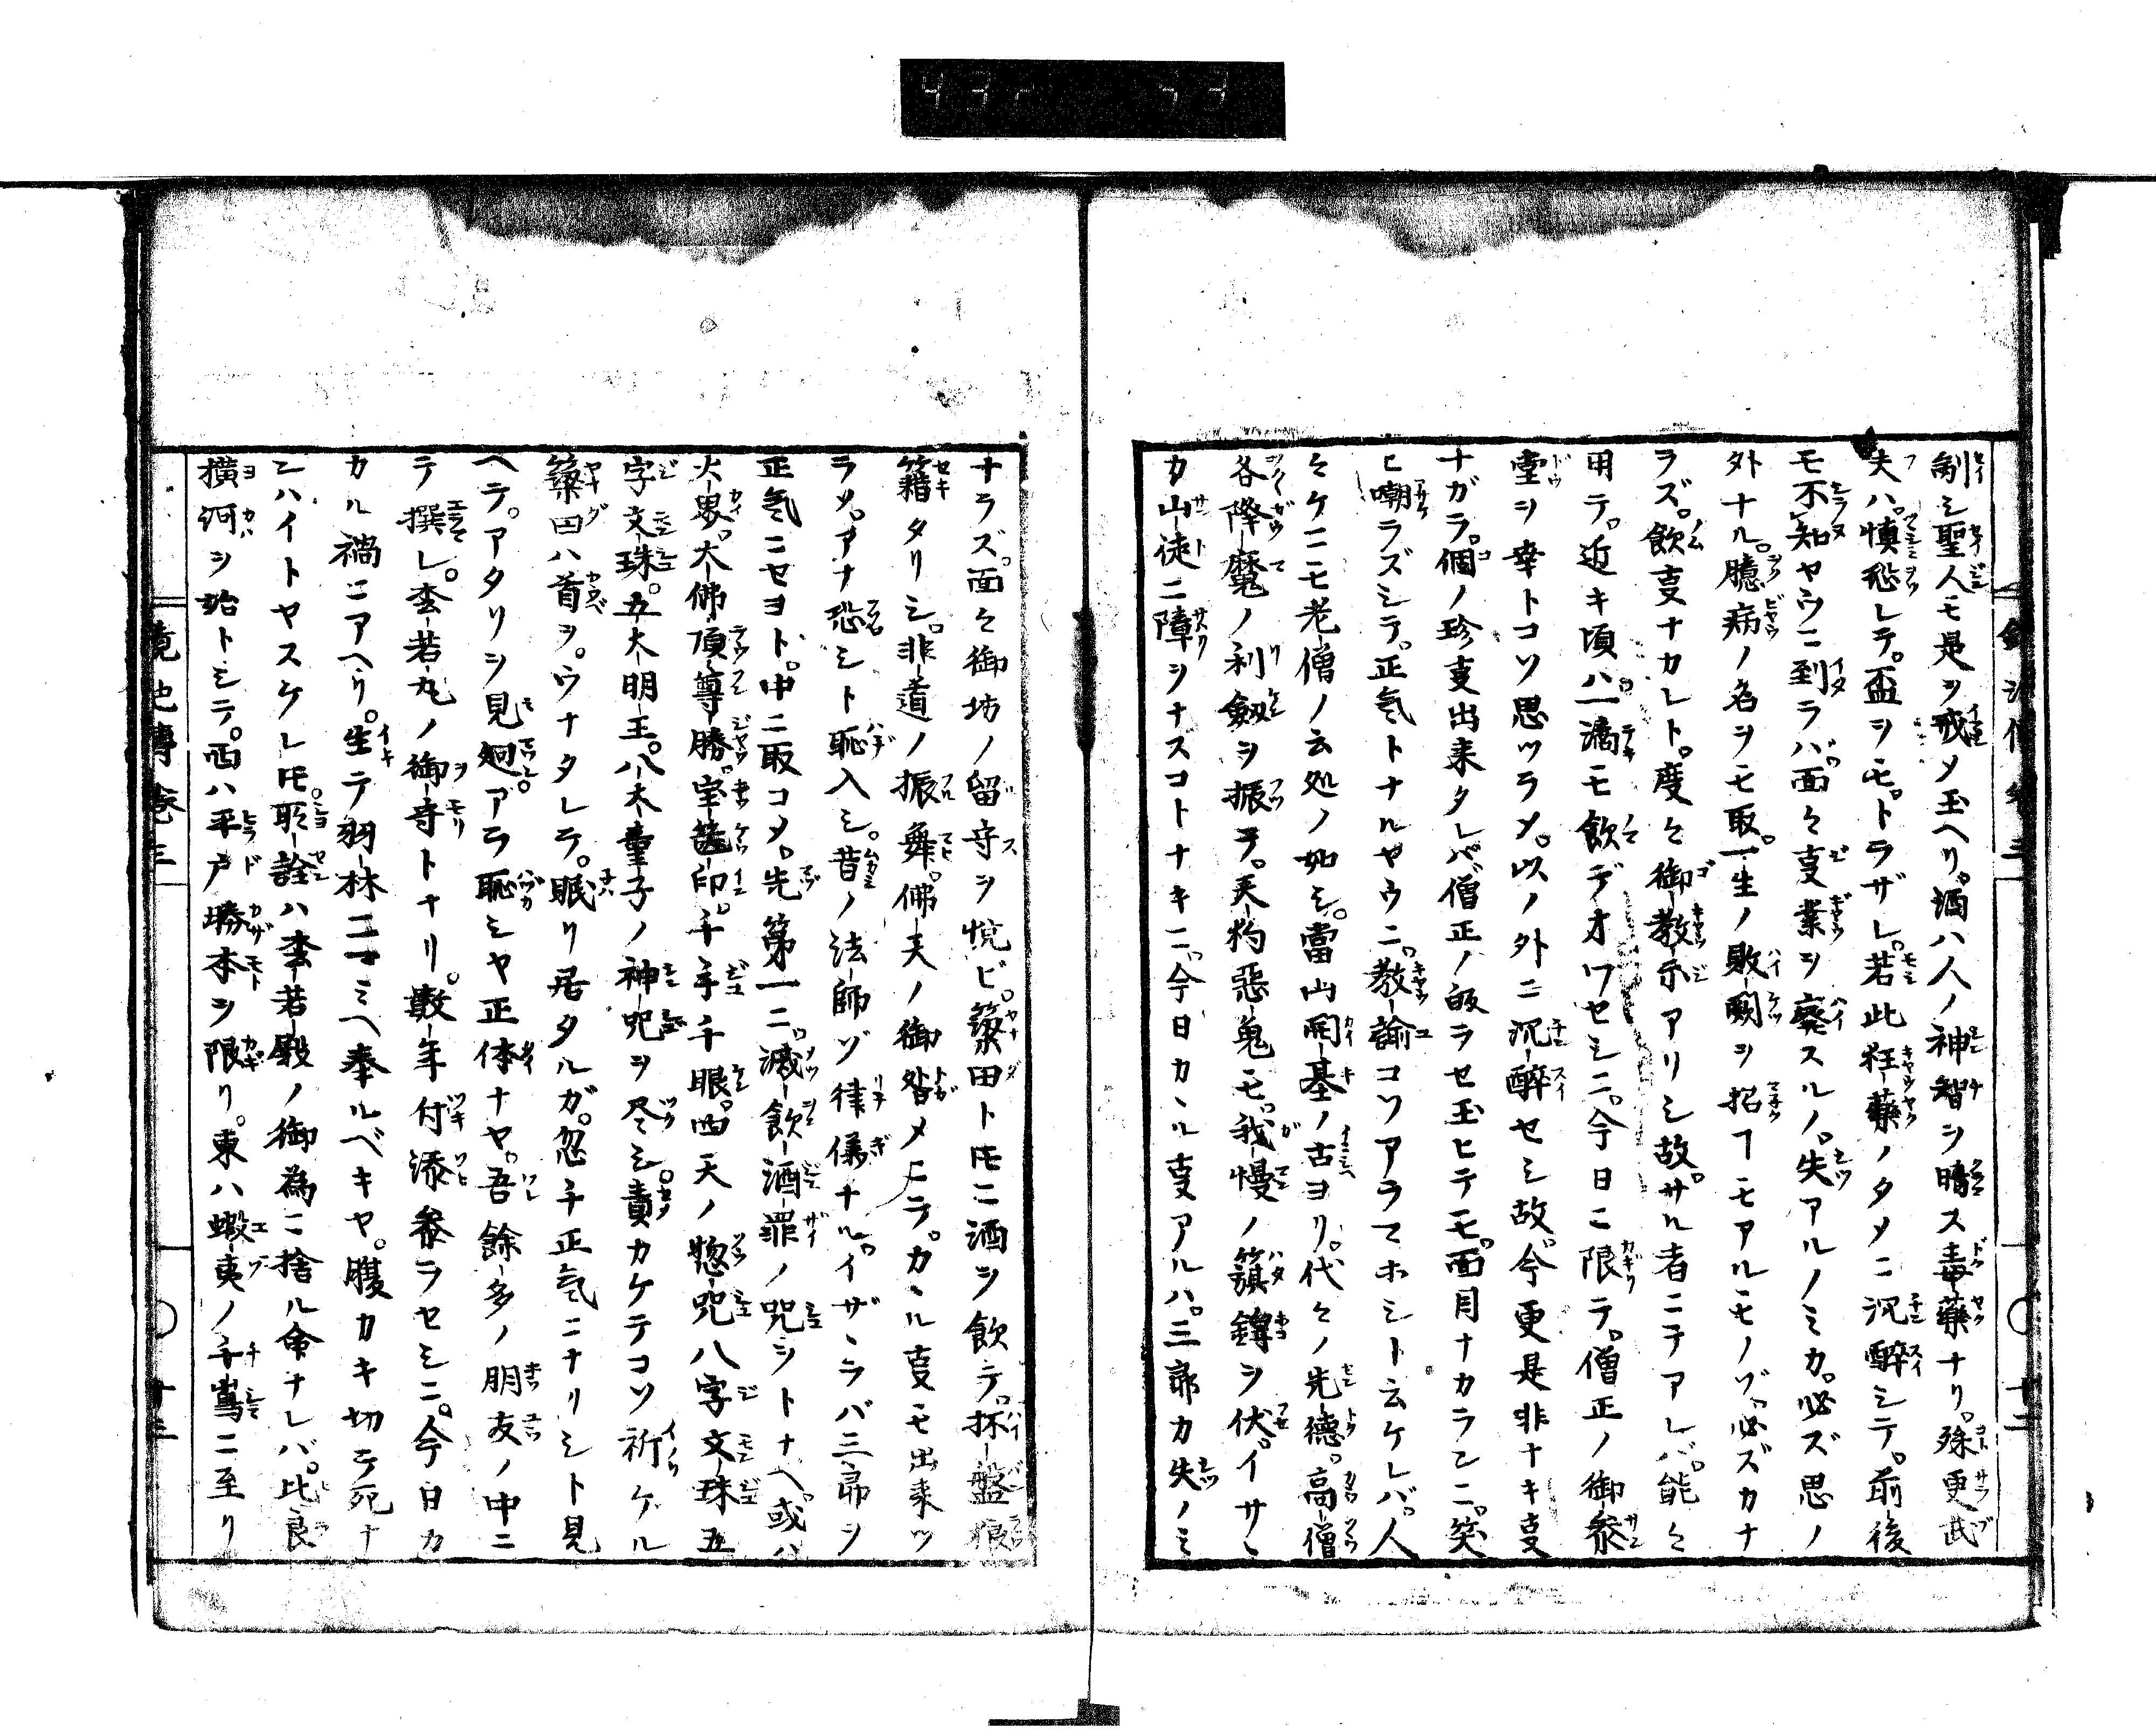 制シ聖人モ是ヲ戒メ玉ヘリ。酒ハ人ノ神智ヲ晴ス毒藥ナリ。殊更武
夫ハ。慎恐レテ。盃ヲモ。トラザレ。若此狂藥ノタメニ沉醉シテ。前後
モ不知ヤウニ到ラバ。面々亊業ヲ廢スルノ。失アルノミカ。必ズ思ノ
外ナル。臆病ノ名ヲモ取。一生ノ敗闕ヲ招ヿモアルモノゾ。必ズカナ
ラズ。飲亊ナカレト。度々御教示アリシ故。サル者ニテアレバ。能々
用テ。近キ頃ハ。一滴モ飲デオワセシニ。今日ニ限テ。僧正ノ御參
堂ヲ幸トコソ思ツラメ。以ノ外ニ沉醉セシ故。今更是非ナキ亊
ナガラ。個ノ珍亊出来タレバ僧正ノ皈ラセ玉ヒテモ。面目ナカラン二。笑
ヒ嘲ラズシテ。正氣トナルヤウニ。教諭コソアラマホシト云ケレバ。人
々ケニモ老僧ノ云処ノ如シ。當山開基ノ古ヨリ。代々ノ先德。高僧
各降魔ノ利劔ヲ振テ。天灼惡鬼モ。我慢ノ籏鋒ヲ伏。イサヽ
カ山徒ニ障ヲナスコトナキニ。今日カヽル亊アルハ。三郎カ失ノミ
ナラズ。面々御坊ノ留守ヲ悦ビ。簗田トモニ酒ヲ飲テ。抔盤狼
籍タリシ。非道ノ振舞。佛天ノ御咎メニテ。カヽル亊モ出来ツ
ラメ。アナ恐シト恥入シ。昔ノ法師ゾ律儀ナル。イザヽラバ三郎ヲ
正氣ニセヨト。中ニ取コメ。先第一ニ。滅飲酒罪ノ咒ヲトナヘ。或ハ
火界。大佛頂尊勝。宝篋印。千手千眼。四天ノ惣咒八字文珠五
字文珠。五大明王。八大童子ノ神咒ヲ尽シ。責カケテコソ祈ケル
簗田ハ首ヲ。ウナタレテ。眠リ居タルガ。忽チ正気ニナリシト見
ヘテ。アタリヲ見廻。アラ恥シヤ正体ナヤ。吾餘多ノ朋友ノ中ニ
テ撰レ。杢若丸ノ御守トナリ。數年付添參ラセシニ。今日カ
カル禍ニアヘリ。生テ羽林ニマミヘ奉ルベキヤ。腹カキ切テ死ナ
ンハイトヤスケレ𪜈。所詮ハ杢若殿ノ御為ニ捨ル命ナレバ。此良
横河ヲ始トシテ。西ハ平戸勝本ヲ限リ。東ハ蝦夷ノ千嶌ニ至リ